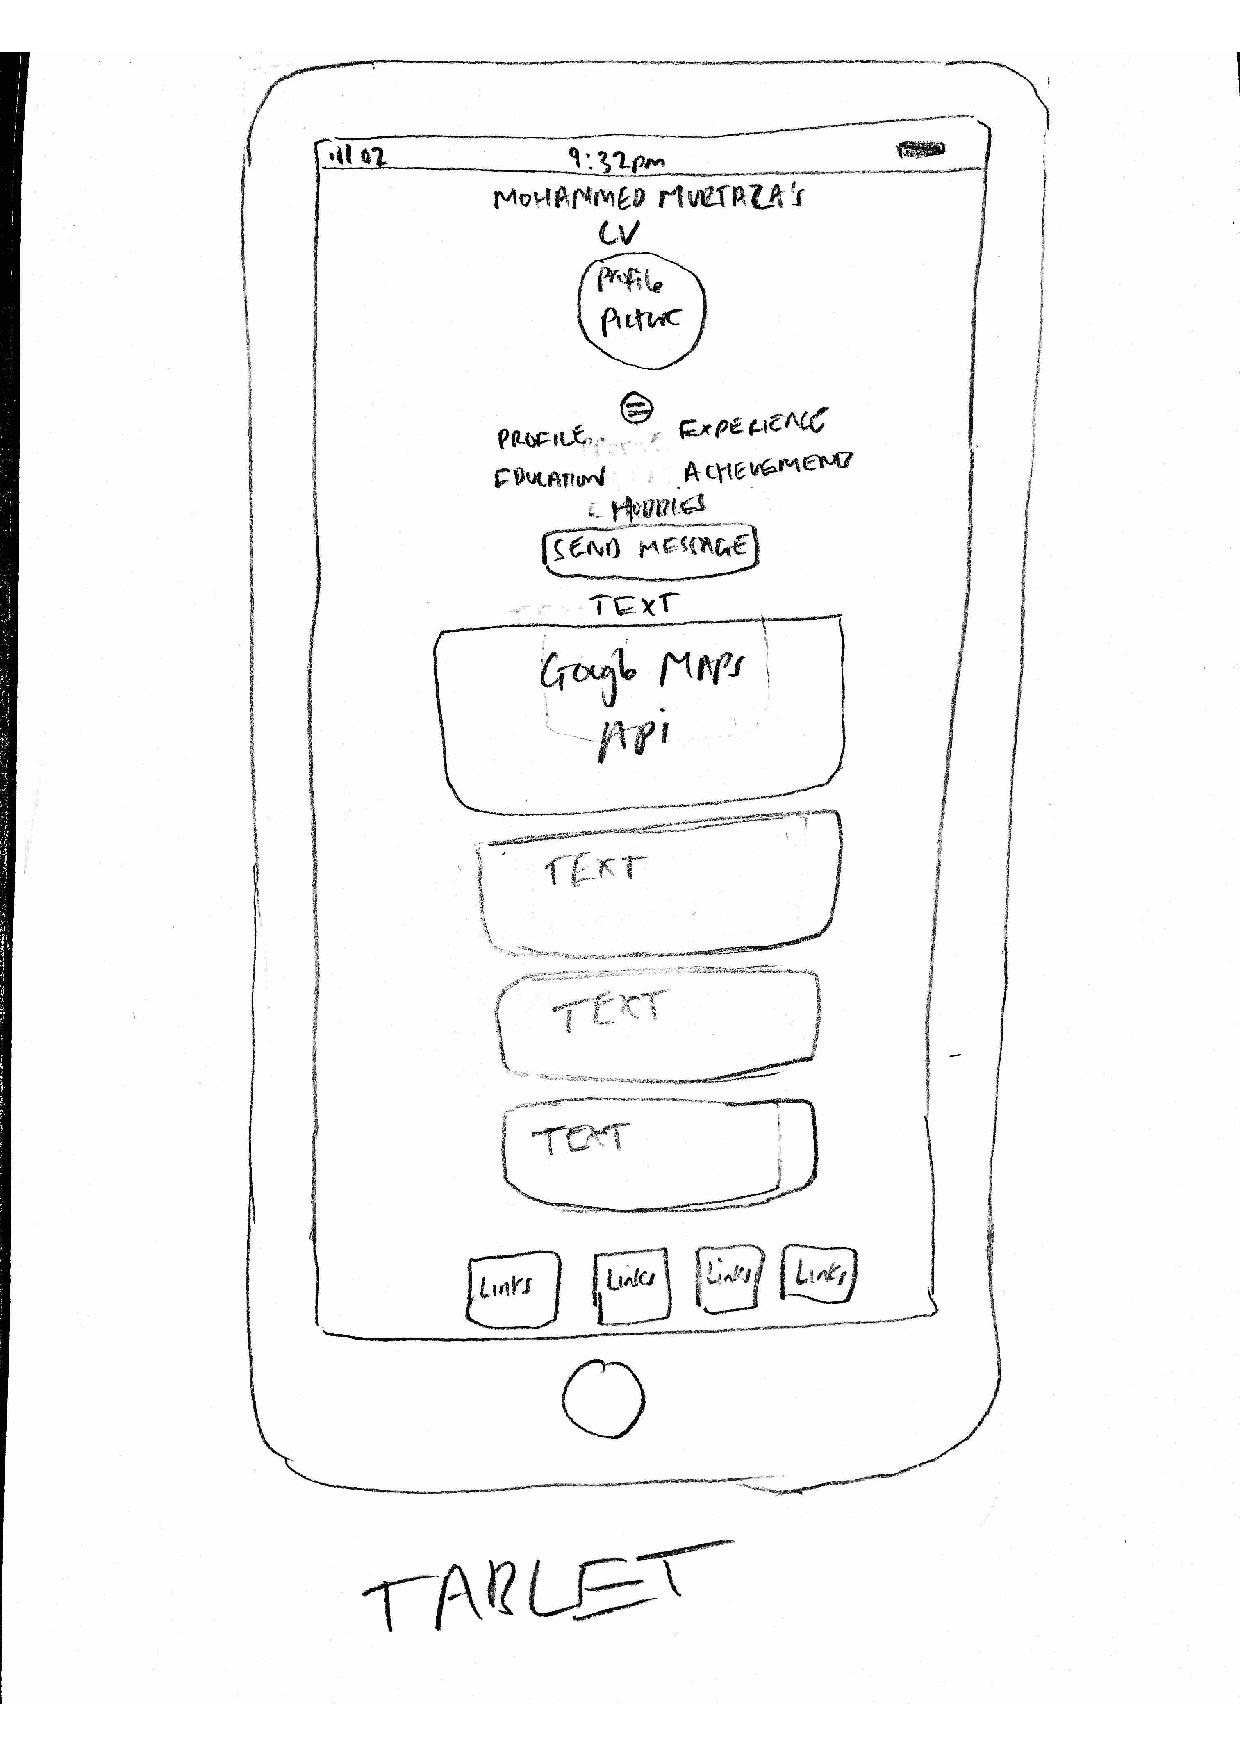 02 9:32pm
MOHAMMED MURTAZA's
CV
Profile
Picture
PROFILE EXPERIENCE
EDUCATION ACHEVEMEND
HOBBIES
SEND MESSAGE
TEXT
Google MAPS
APi
TEXT
TEXT
TEXT
Links Links Links Links
TABLET